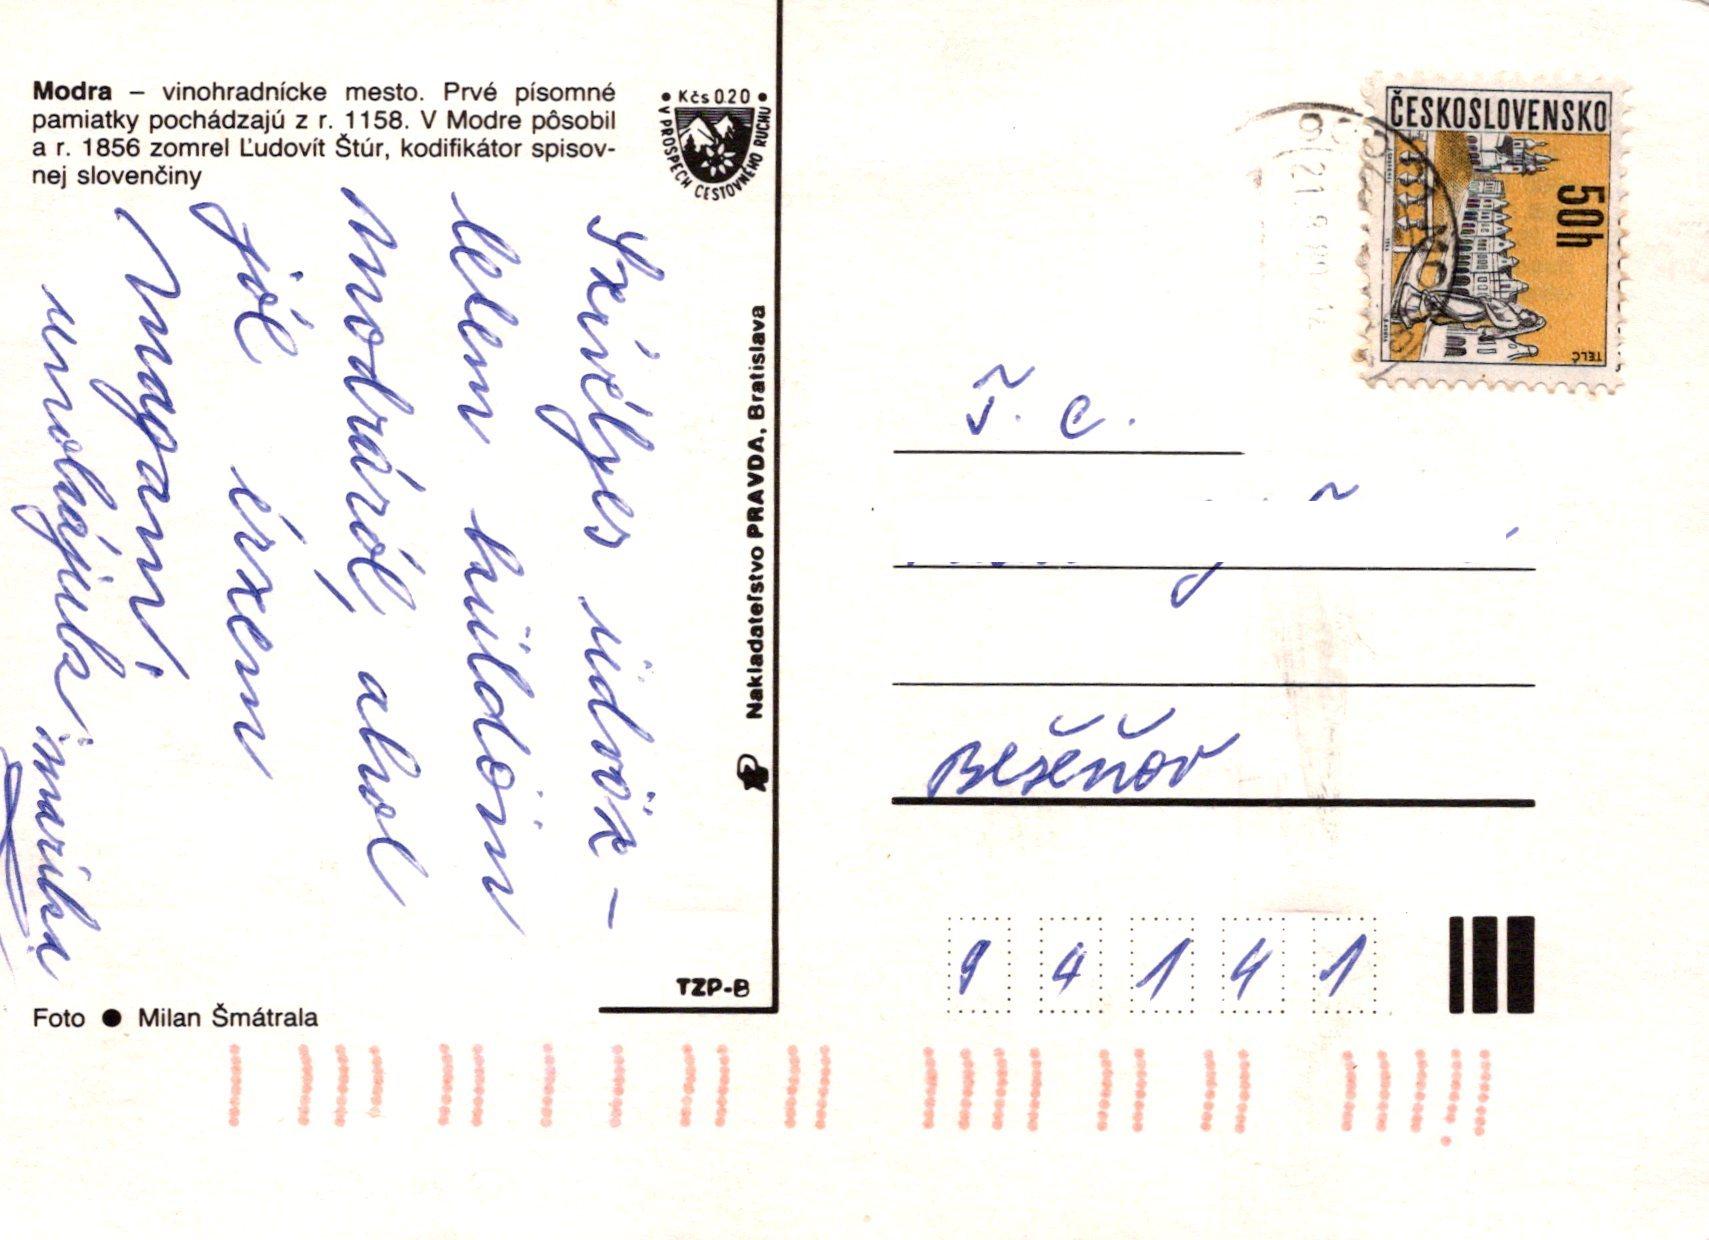 Modra – vinohradnícke mesto. Prvé písomné
pamiatky pochádzajú z r. 1158. V Modre pôsobil
a r. 1856 zomrel Ľudovít Štúr, kodifikátor spisov-
nej slovenčiny
• Kčs 0.20 •
V PROSPECH CESTOVNÉHO RUCHU
Szívélyes üdvöz-
letem küldöm
Modráról, ahol
jól érzem
magam!
unokájuk
Nakladateľstvo PRAVDA, Bratislava
TZP-B
Foto ● Milan Šmátrala
ČESKOSLOVENSKO
50h
TELČ
21.9.
Č. C.
Bešeňov
94141